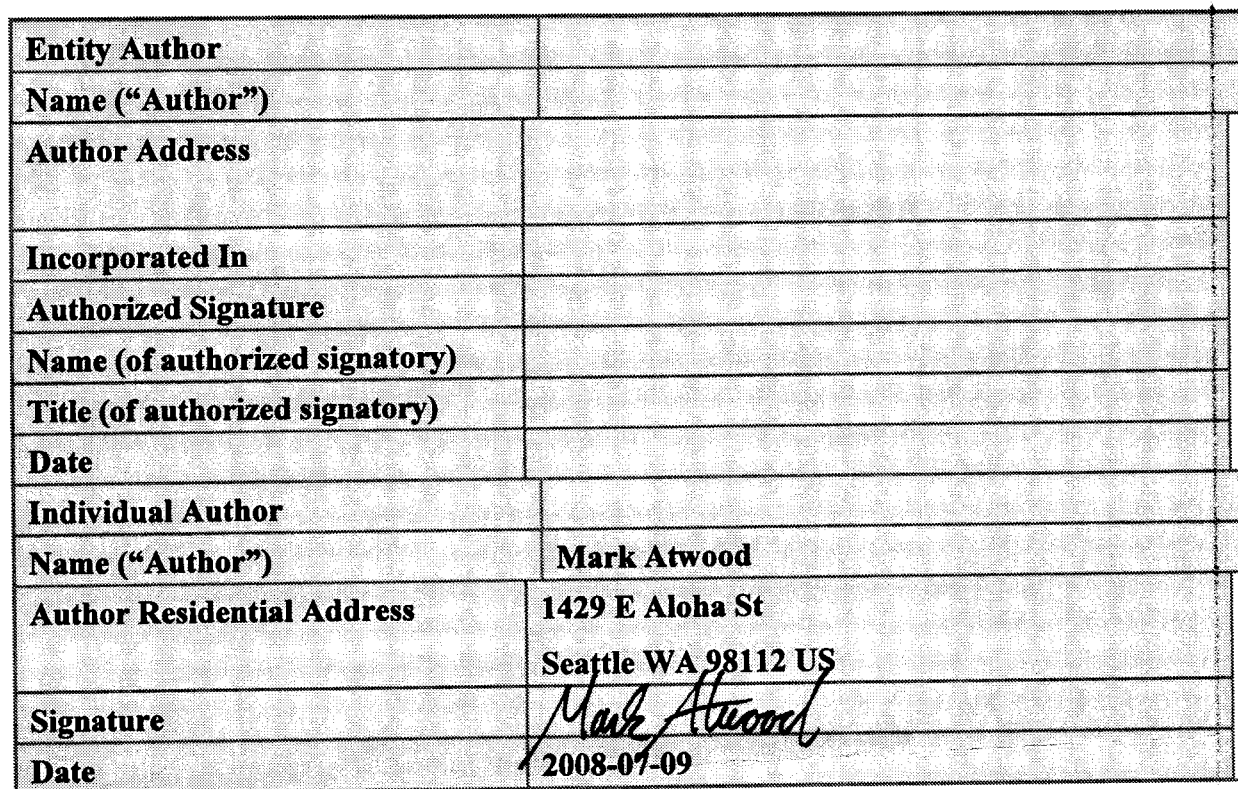 Entity Author
Name (“Author”)
Author Address
Incorporated In
Authorized Signature
Name (of authorized signatory)
Title (of authorized signatory)
Date
Individual Author
Name (“Author”) Mark Atwood
Author Residential Address 1429 E Aloha St
Seattle WA 98112 US
Signature Mark Atwood
Date 2008-07-09